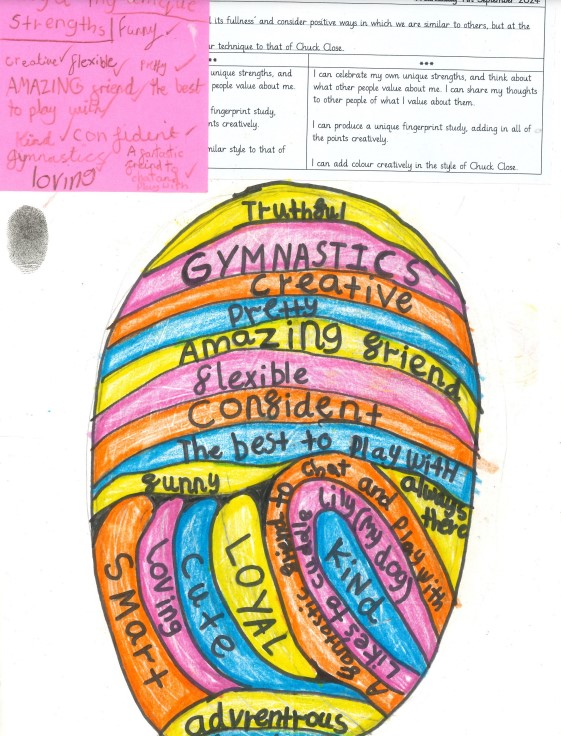 my unique
strengths/ funny ✓
creative ✓ flexible ✓ Pretty ✓
AMAZING friend ✓ the best
to play with ✓
Kind ✓ confident ✓
gymnastics
A fantastic
friend to
chat and
play with
loving
September 2024
its fullness' and consider positive ways in which we are similar to others, but at the
technique to that of Chuck Close.
unique strengths, and
people value about me.
fingerprint study,
nts creatively.
milar style to that of
***
I can celebrate my own unique strengths, and think about
what other people value about me. I can share my thoughts
to other people of what I value about them.
I can produce a unique fingerprint study, adding in all of
the points creatively.
I can add colour creatively in the style of Chuck Close.
Truthful
GYMNASTICS
Creative
Pretty
Amazing friend
flexible
Confident
The best to play with
funny
always
there
Smart
loving
Cute
LOYAL
A fantastic friend to chat and play with
Likes to cuddle Lily (my dog)
KiND
advrentrous